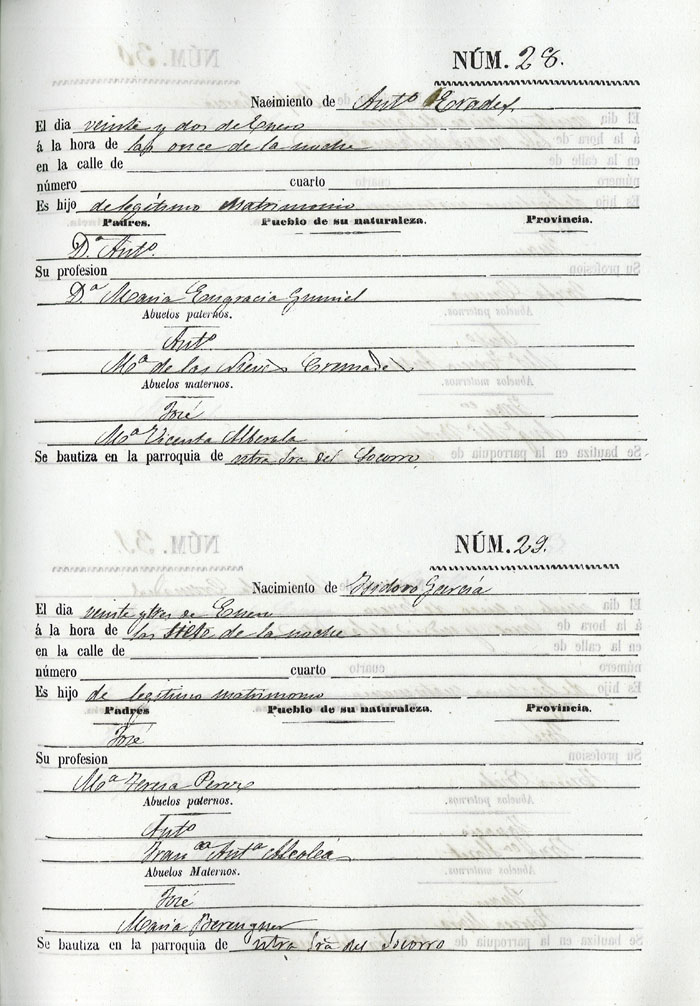 NÚM. 28.
Nacimiento de Antº Pradel
El dia veinte y dos de Enero
á la hora de las once de la noche
en la calle de
número cuarto
Es hijo de legítimo Matrimonio
Padres. Pueblo de su naturaleza. Provincia.
Dⁿ Antº.
Su profesion
Dª Maria Engracia Gumiel
Abuelos paternos.
Antº
Mª de las Nieves
Abuelos maternos.
José
Mª Vicenta Alberola
Se bautiza en la parroquia de ntra Sra del Socorro
NÚM. 29.
Nacimiento de Isidoro García
El dia veinte y tres de Enero
á la hora de las siete de la noche
en la calle de
número cuarto
Es hijo de legitimo matrimonio
Padres Pueblo de su naturaleza. Provincia.
José
Su profesion
Mª Teresa Perez
Abuelos paternos.
Antº
Franᶜª Antª Alcolea
Abuelos Maternos.
José
Maria Berenguer
Se bautiza en la parroquia de ntra Srª del Socorro